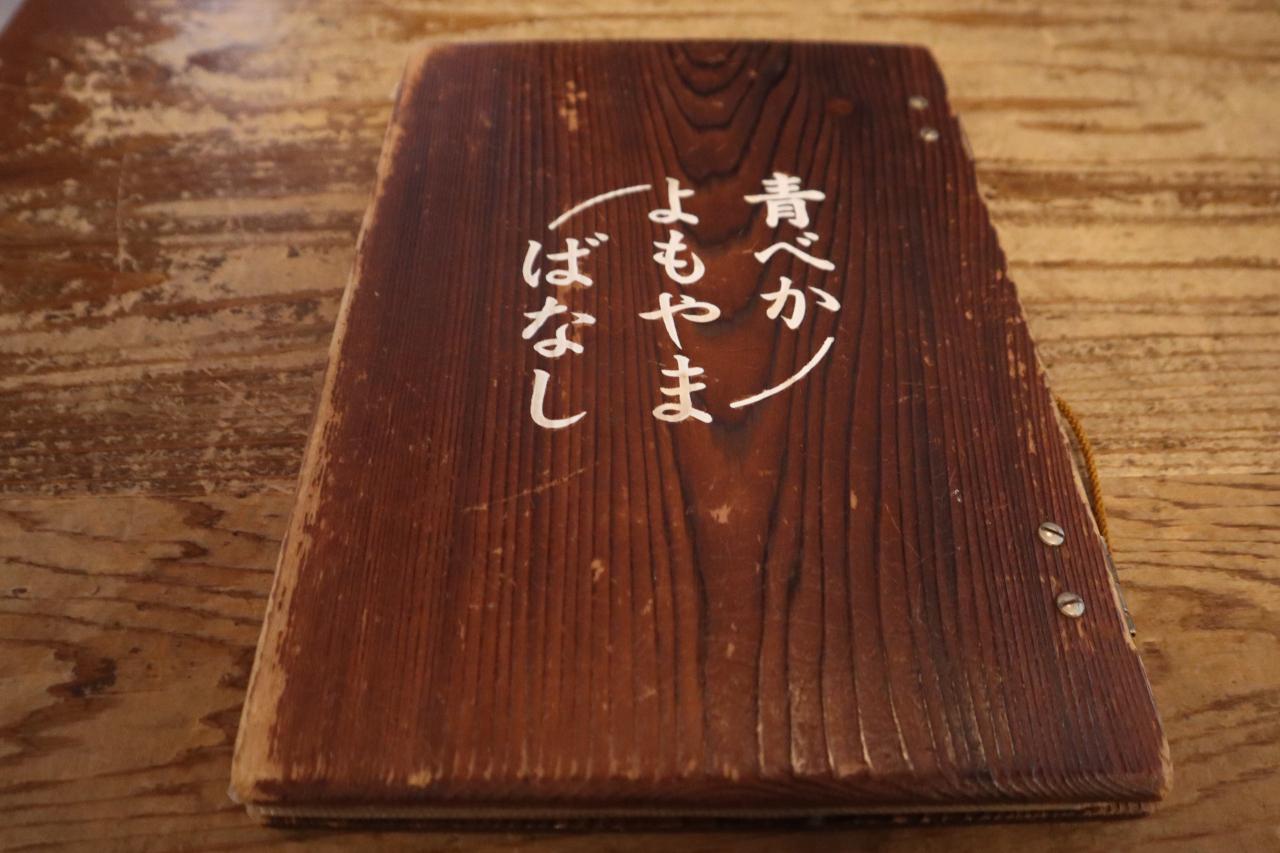 青べか
よもやま
ばなし